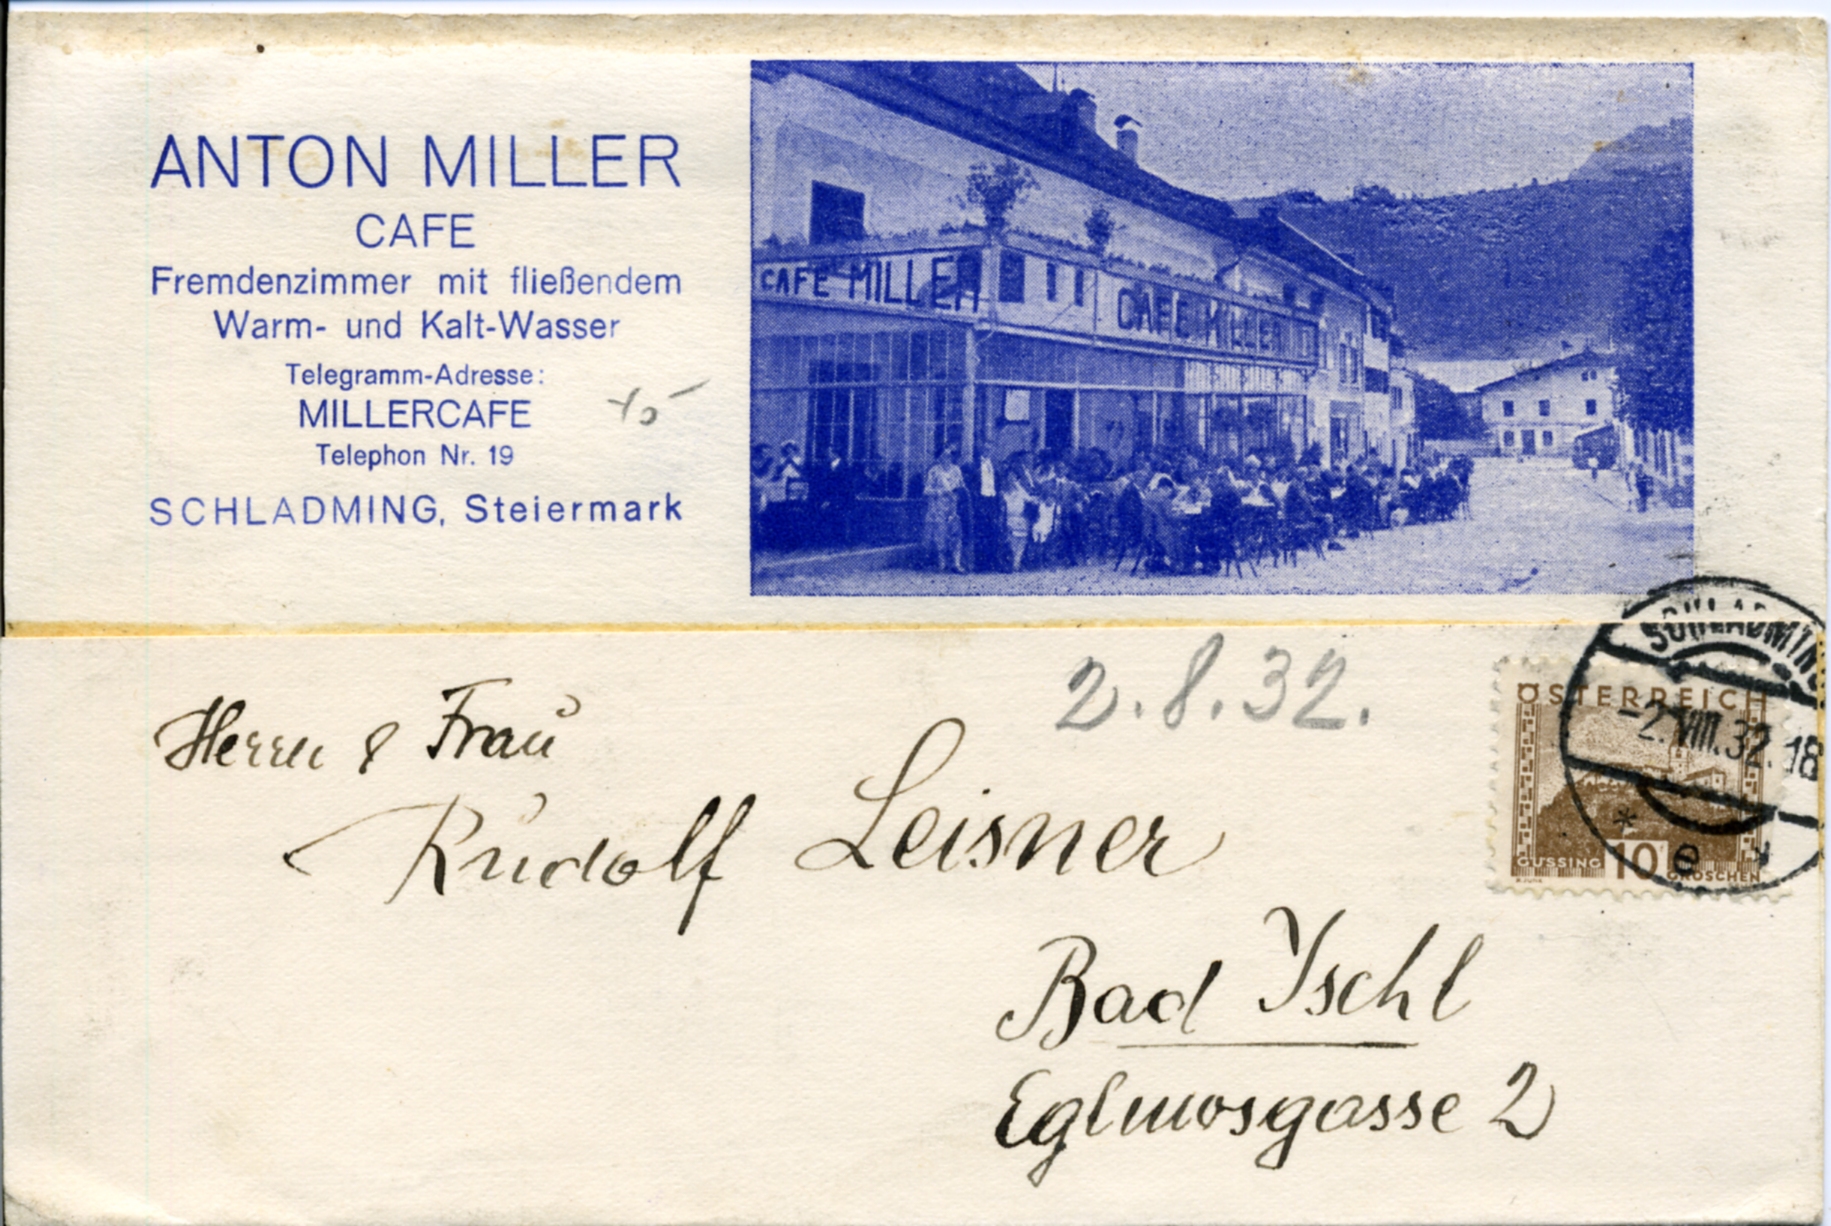 ANTON MILLER
CAFE
Fremdenzimmer mit fließendem
Warm- und Kalt-Wasser
Telegramm-Adresse:
MILLERCAFE
Telephon Nr. 19
SCHLADMING, Steiermark
CAFE MILLER
CAFE MILLER
2.8.32.
SCHLADMING
-2.VIII.32.18
* e *
ÖSTERREICH
GÜSSING 10 GROSCHEN
Herrn & Frau
Rudolf Leisner
Bad Ischl
Eglmosgasse 2